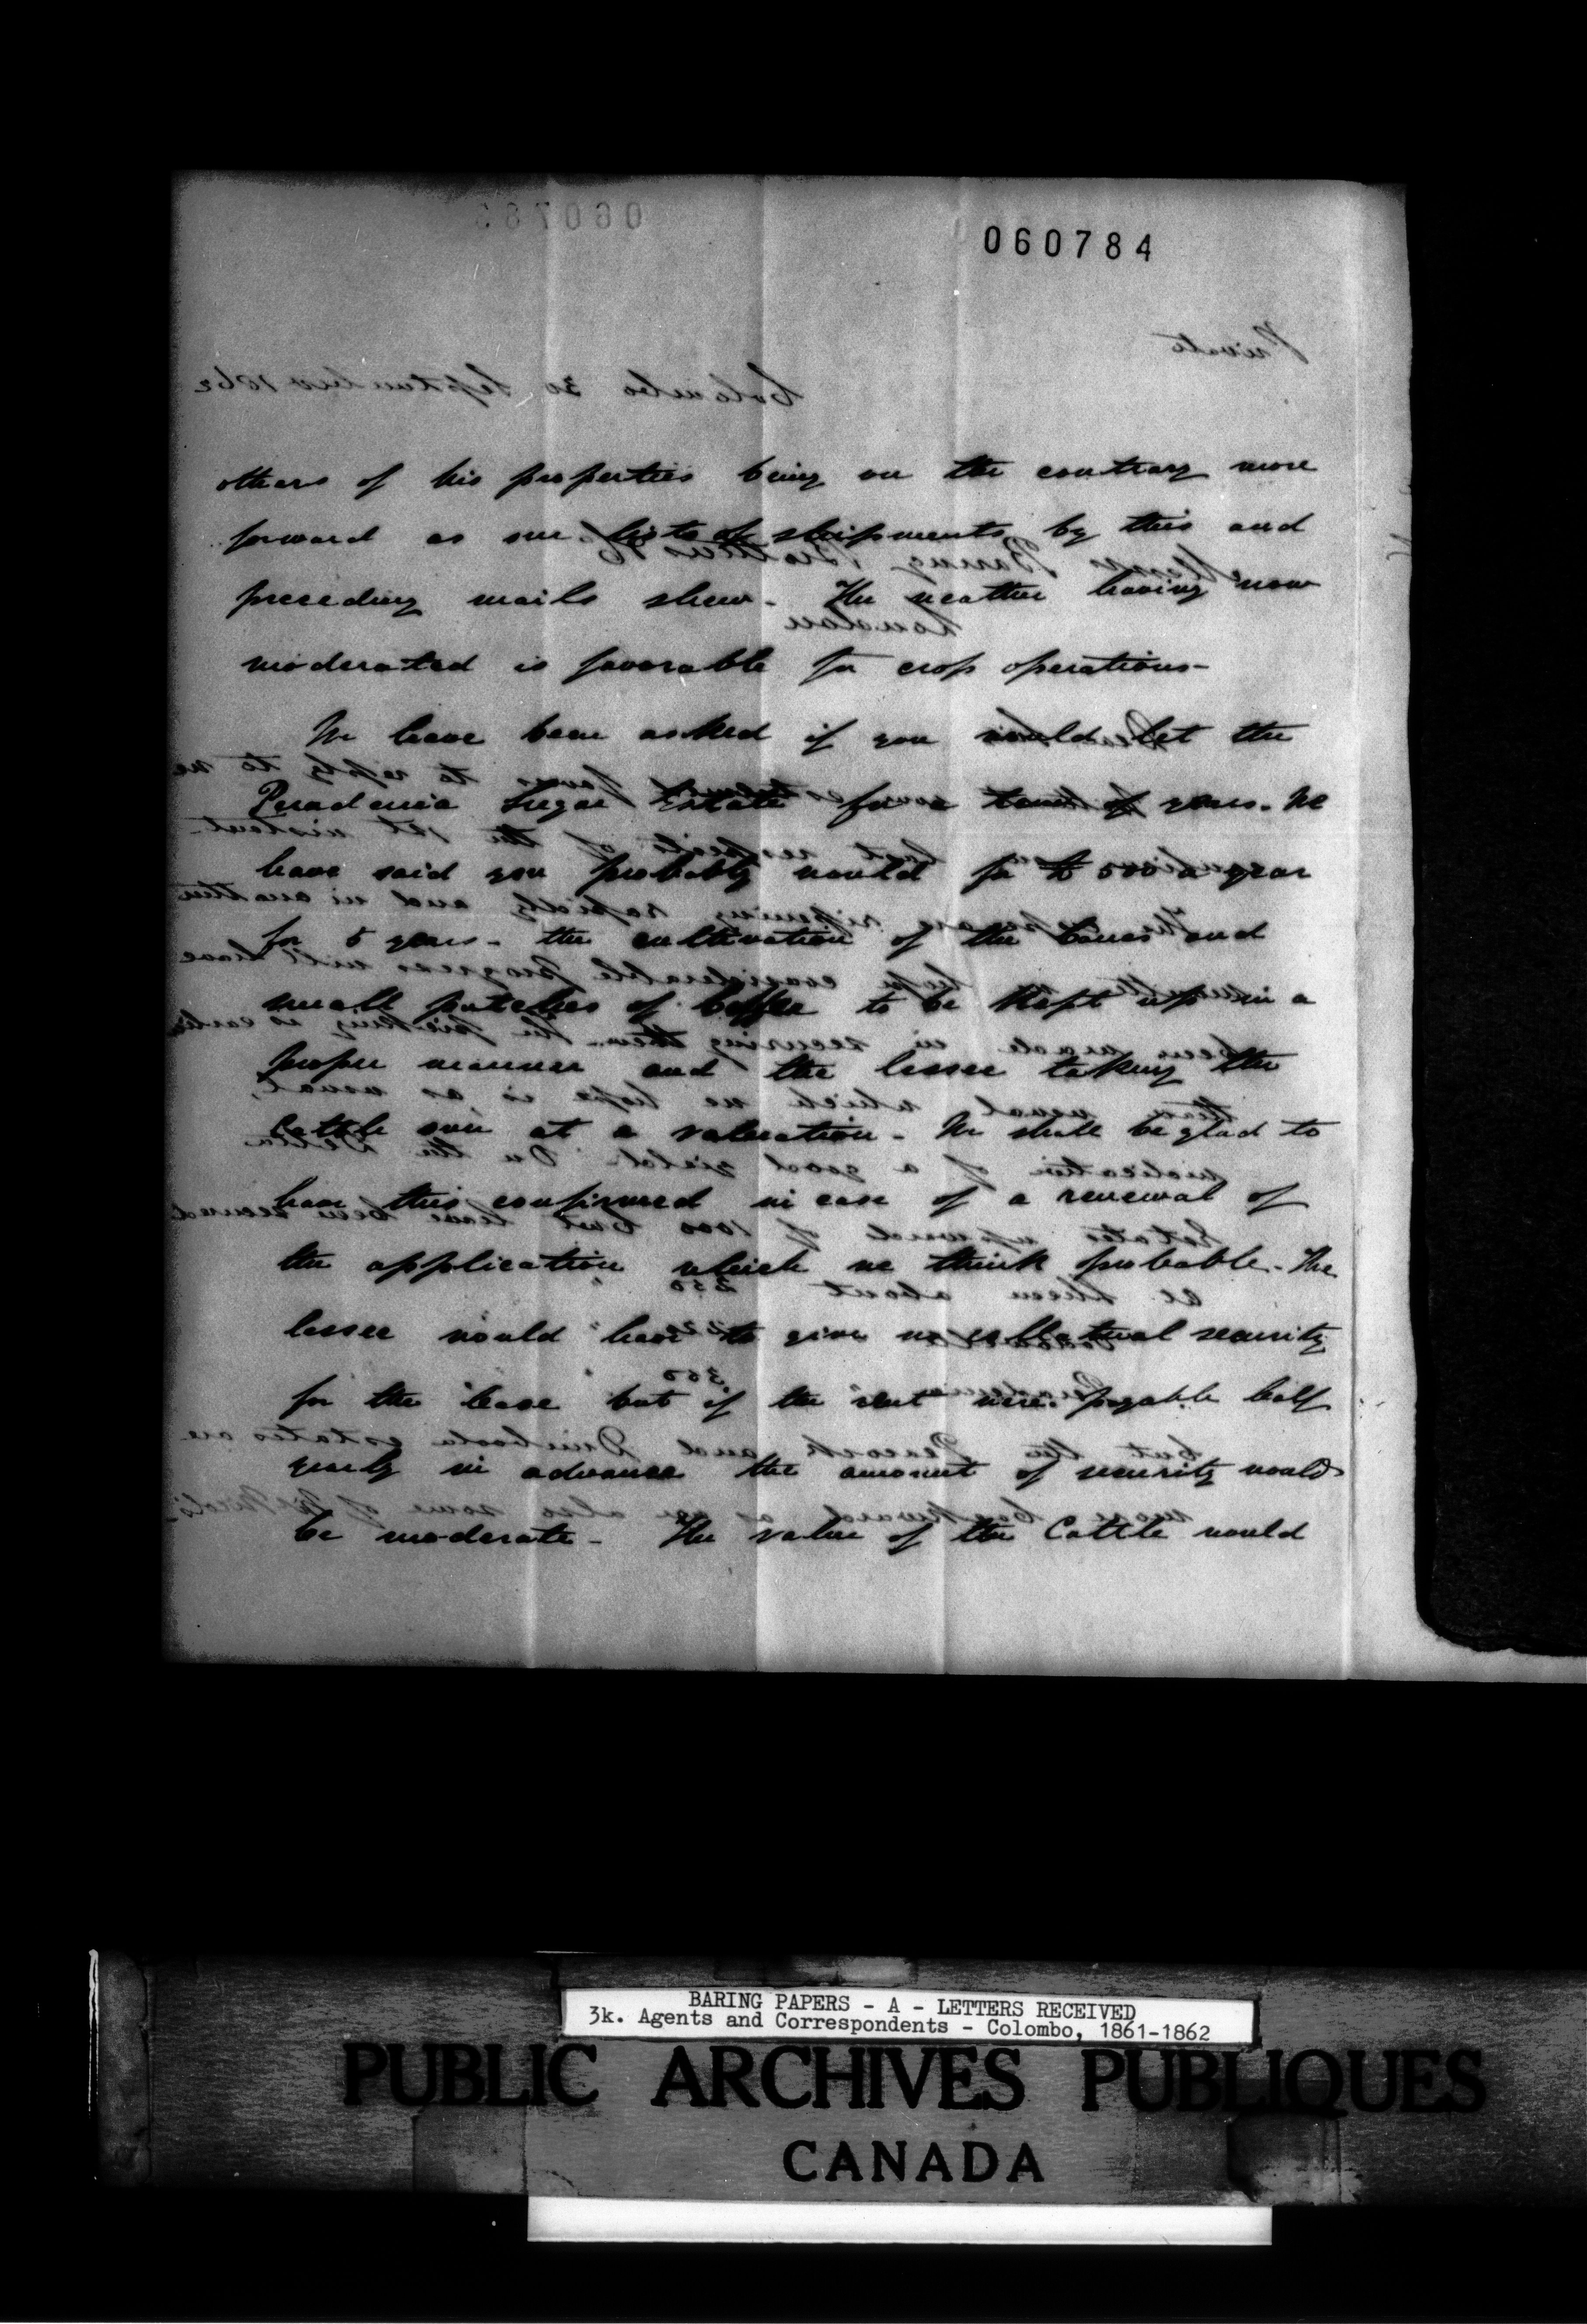 060784
others of his properties being on the contrary more
forward as our lists of shipments by this and
preceding mails shew - The weather having now
moderated is favorable for crop operations -
We have been asked if you would let the
Peradenia Sugar Estate for a term of years. We
have said you probably would for a year
for 5 years - the cultivation of the Canes and
small patches of Coffee to be kept up in a
proper manner and the lessee taking the
Cattle over at a valuation - We shall be glad to
have this confirmed in case of a renewal of
the application which we think probable. The
lessee would have to give us collateral security
for the lease but if the rent were payable half
yearly in advance the amount of security would
be moderate - The value of the Cattle would
BARING PAPERS - A - LETTERS RECEIVED
3k. Agents and Correspondents - Colombo, 1861-1862
PUBLIC ARCHIVES PUBLIQUES
CANADA